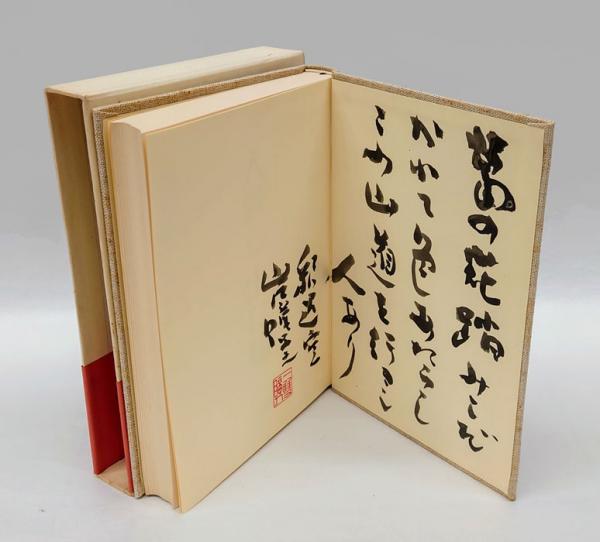 葛の花踏みしだ
かれて色あたらし
この山道を行きし
人あり
釈迢空